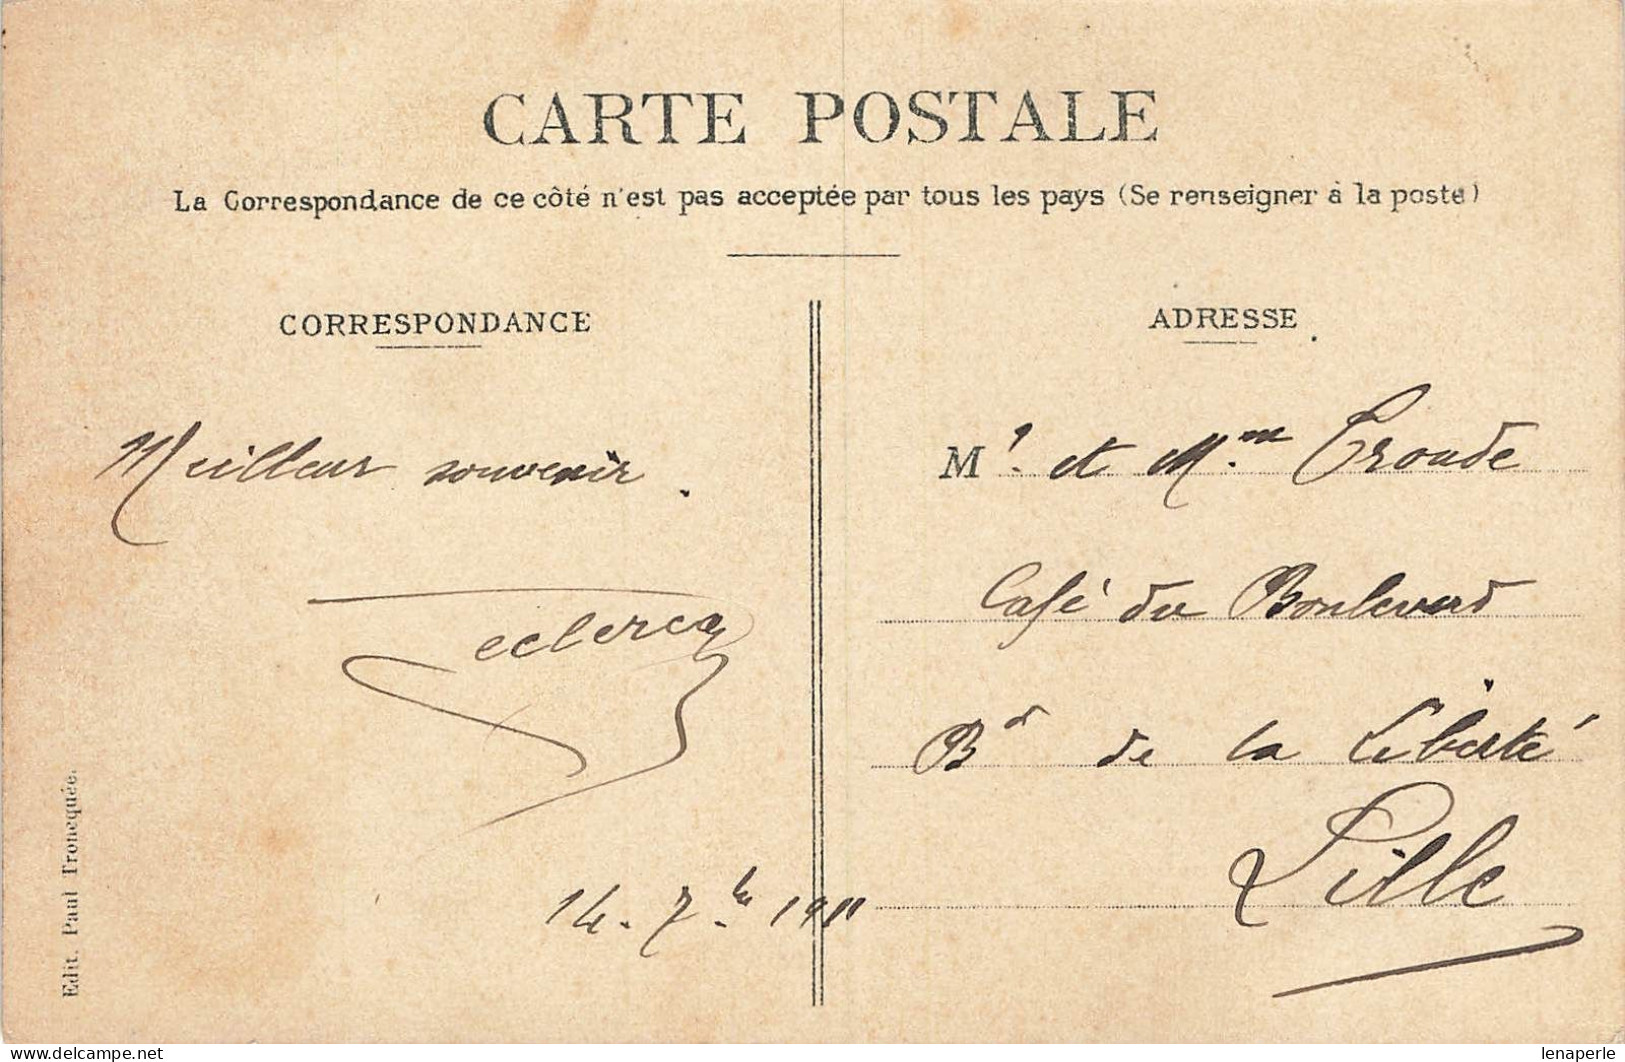 CARTE POSTALE
La Correspondance de ce côté n'est pas acceptée par tous les pays (Se renseigner à la poste)
CORRESPONDANCE
Meilleur souvenir.
Leclercq
14. 7bre 1911
Edit. Paul Troncquée.
ADRESSE
Mr. et Mme Tronde
Café du Boulevard
Bd de la Liberté
Lille
lenaperle